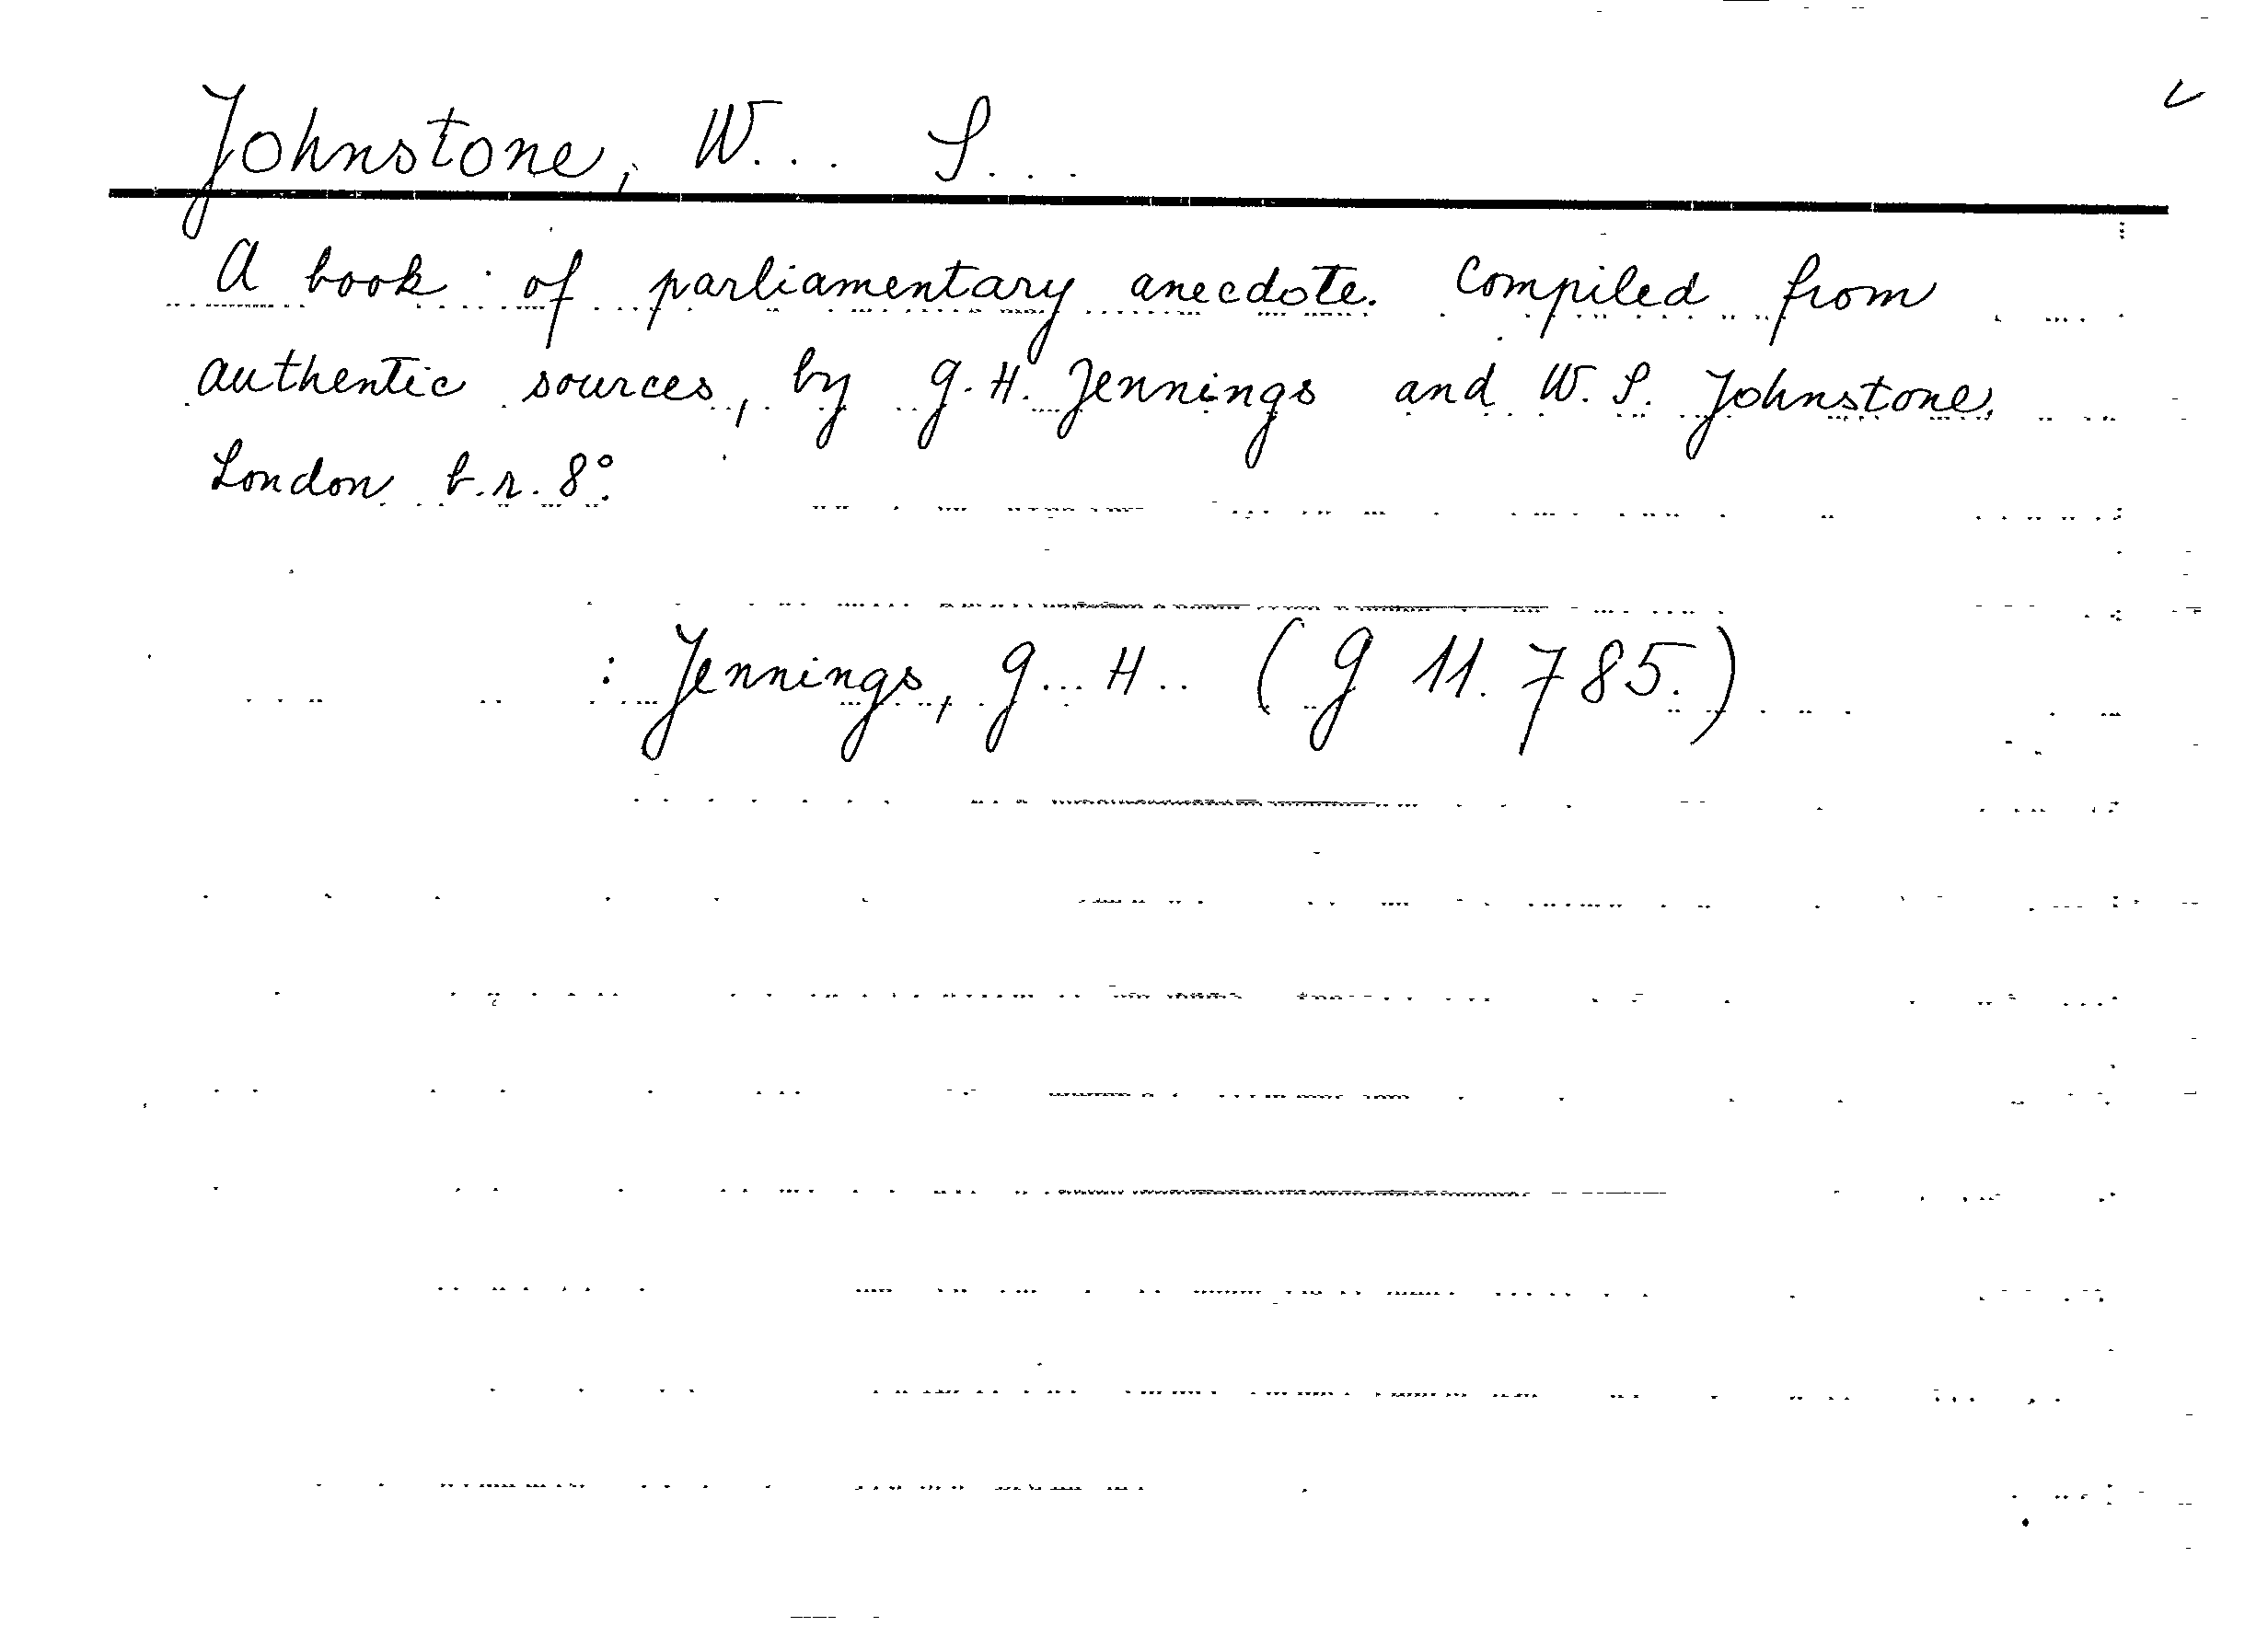 Johnstone, W... S...
A book of parliamentary anecdote. Compiled from
authentic sources, by G. H. Jennings and W. S. Johnstone.
London b.r. 8°.
: Jennings, G... H.. (G 11.785.)